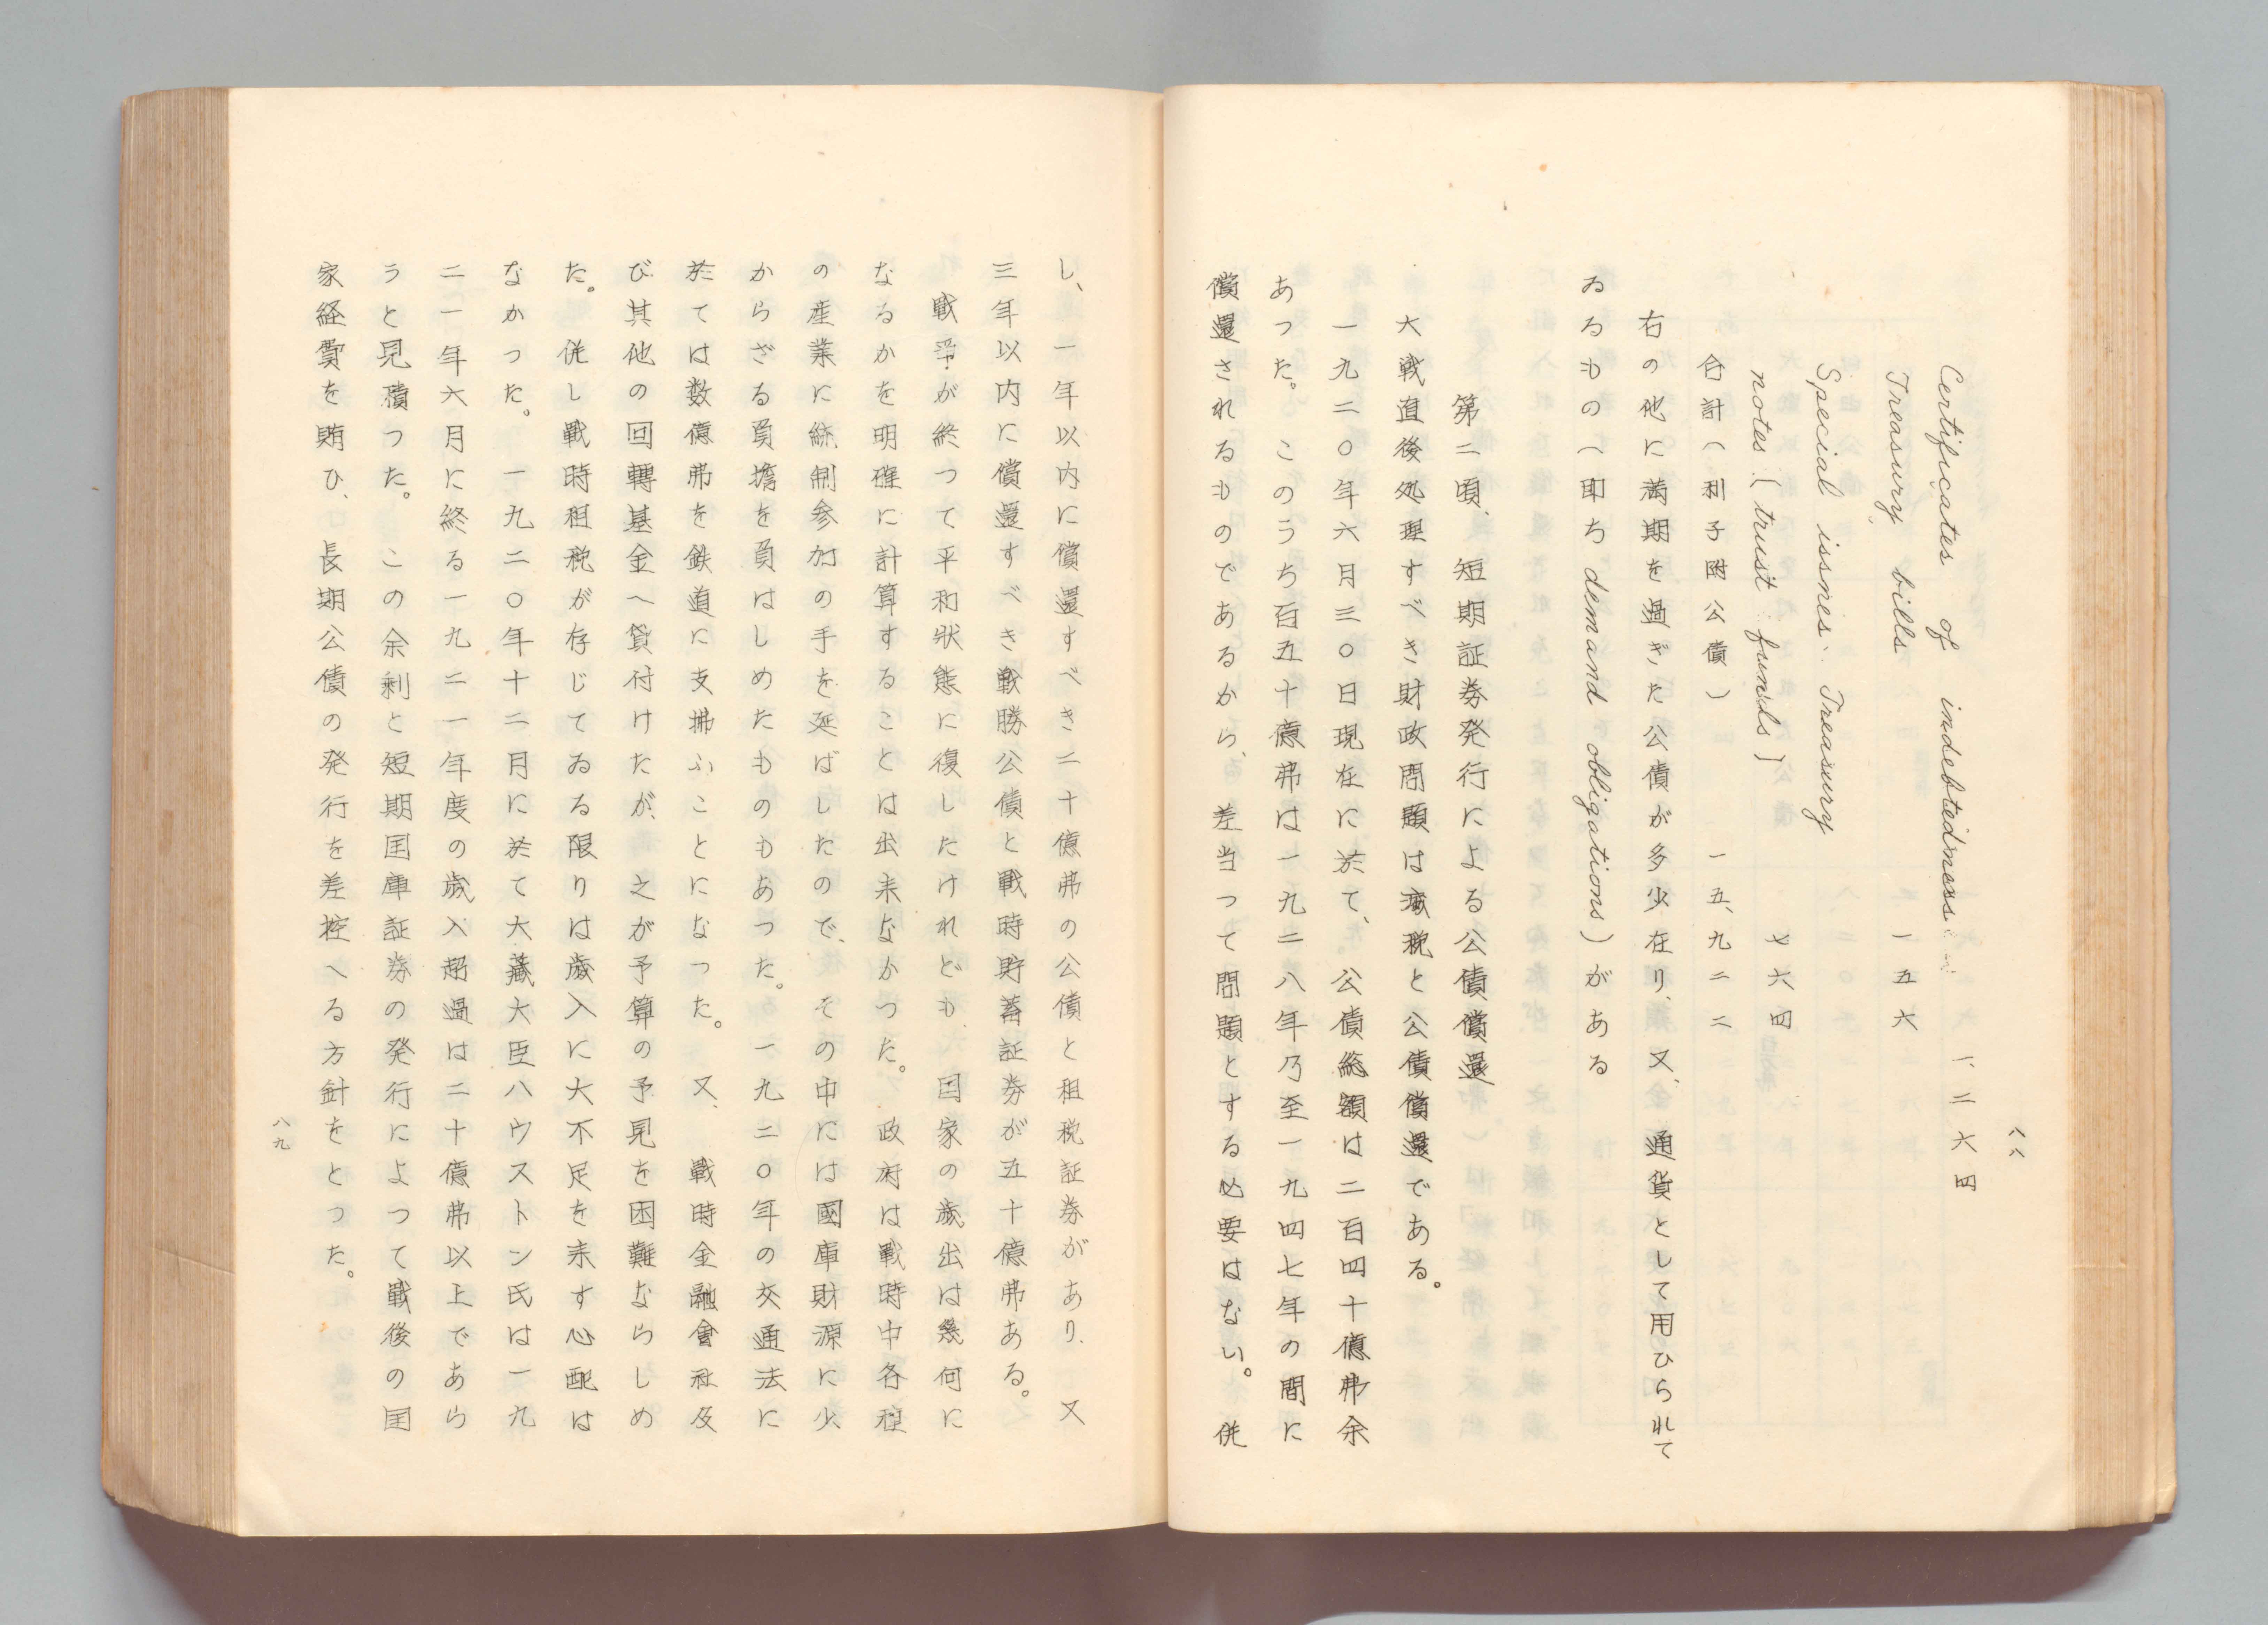 八八
Certificates of indebtedness 一、二六四
Treasury bills 一五六
Special issues、Treasury
notes〔trust funds〕 七六四
合計(利子附公債) 一五、九二二
右の他に満期を過ぎた公債が多少在り、又、通貨として用ひられて
ゐるもの(即ち demand obligations)がある
第二項、短期証券発行による公債償還
大戦直後処理すべき財政問題は減税と公債償還である。
一九二〇年六月三〇日現在に於て、公債総額は二百四十億弗余
あつた。このうち百五十億弗は一九二八年乃至一九四七年の間に
償還されるものであるから、差当つて問題とする必要はない。併
し、一年以内に償還すべき二十億弗の公債と租税証券があり、又
三年以内に償還すべき戦勝公債と戦時貯蓄証券が五十億弗ある。
戦争が終つて平和状態に復したけれども、囯家の歳出は幾何に
なるかを明確に計算することは出来なかつた。政府は戦時中各種
の産業に統制参加の手を延ばしたので、その中には國庫財源に少
からざる負擔を負はしめたものもあつた。一九二〇年の交通法に
於ては数億弗を鉄道に支拂ふことになつた。又、戦時金融會社及
び其他の回轉基金へ貸付けたが、之が予算の予見を困難ならしめ
た。併し戦時租税が存じてゐる限りは歳入に大不足を来す心配は
なかつた。一九二〇年十二月に於て大藏大臣ハウストン氏は一九
二一年六月に終る一九二一年度の歳入超過は二十億弗以上であら
うと見積つた。この余剰と短期囯庫証券の発行によつて戦後の囯
家経費を賄ひ、長期公債の発行を差控へる方針をとつた。
八九